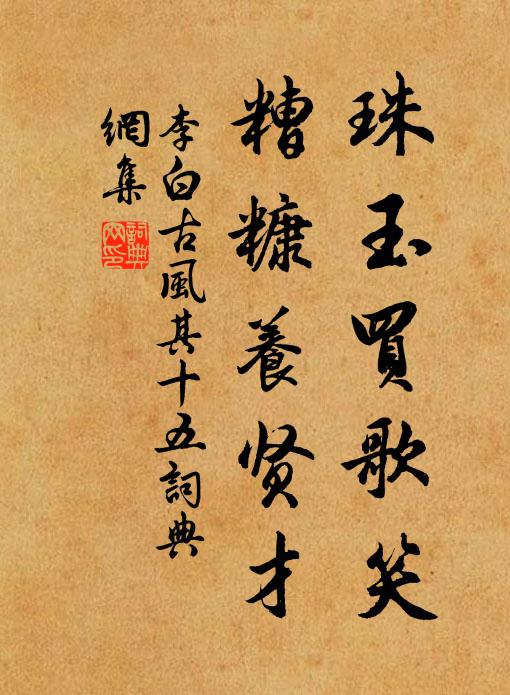 珠玉買歌笑
糟糠養贤才
李白古風其十五詞典
網集
詞典網印